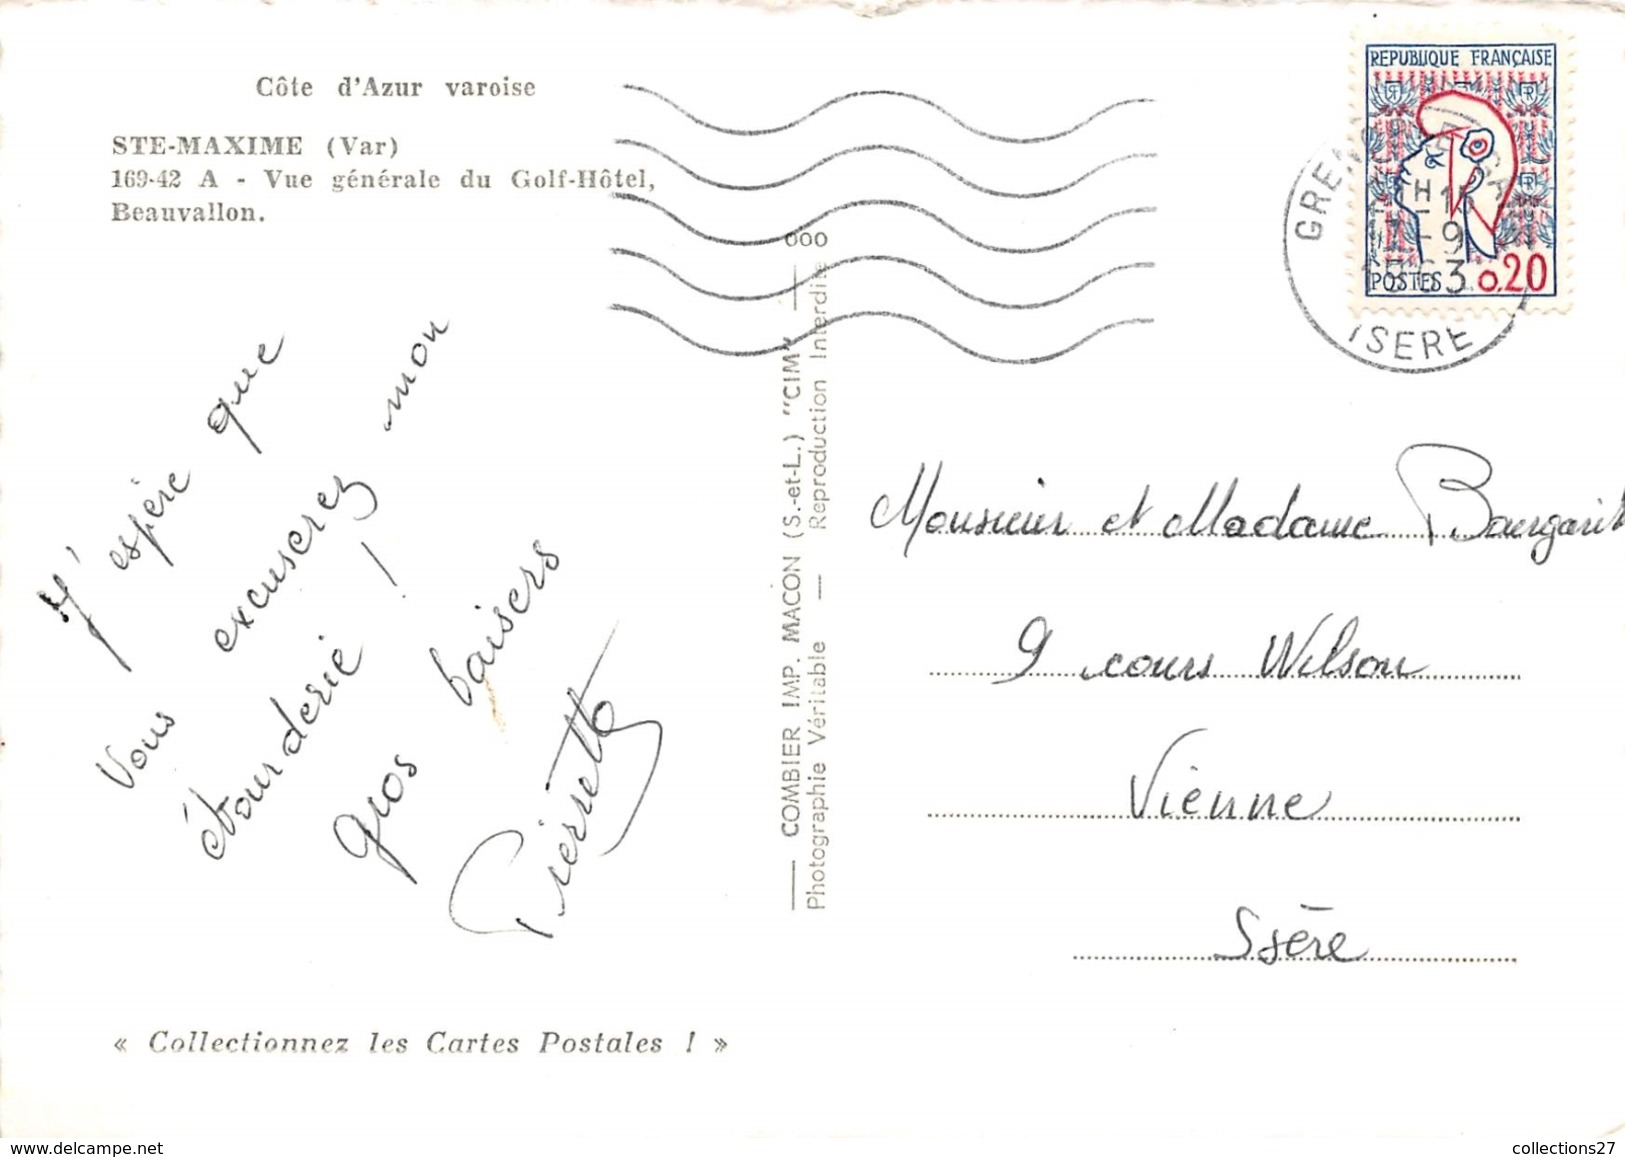 Côte d'Azur varoise
STE-MAXIME (Var)
169-42 A - Vue générale du Golf-Hôtel,
Beauvallon.
J'espère que
vous excuserez mon
étourderie !
gros baisers
Pierrette
« Collectionnez les Cartes Postales ! »
COMBIER IMP. MACON (S.-et-L.) "CIM"
Photographie Véritable — Reproduction Interdite
000
REPUBLIQUE FRANÇAISE
POSTES 0,20
ISERE
Monsieur et Madame
9 cours Wilson
Vienne
Isère
delcampe.net
collections27